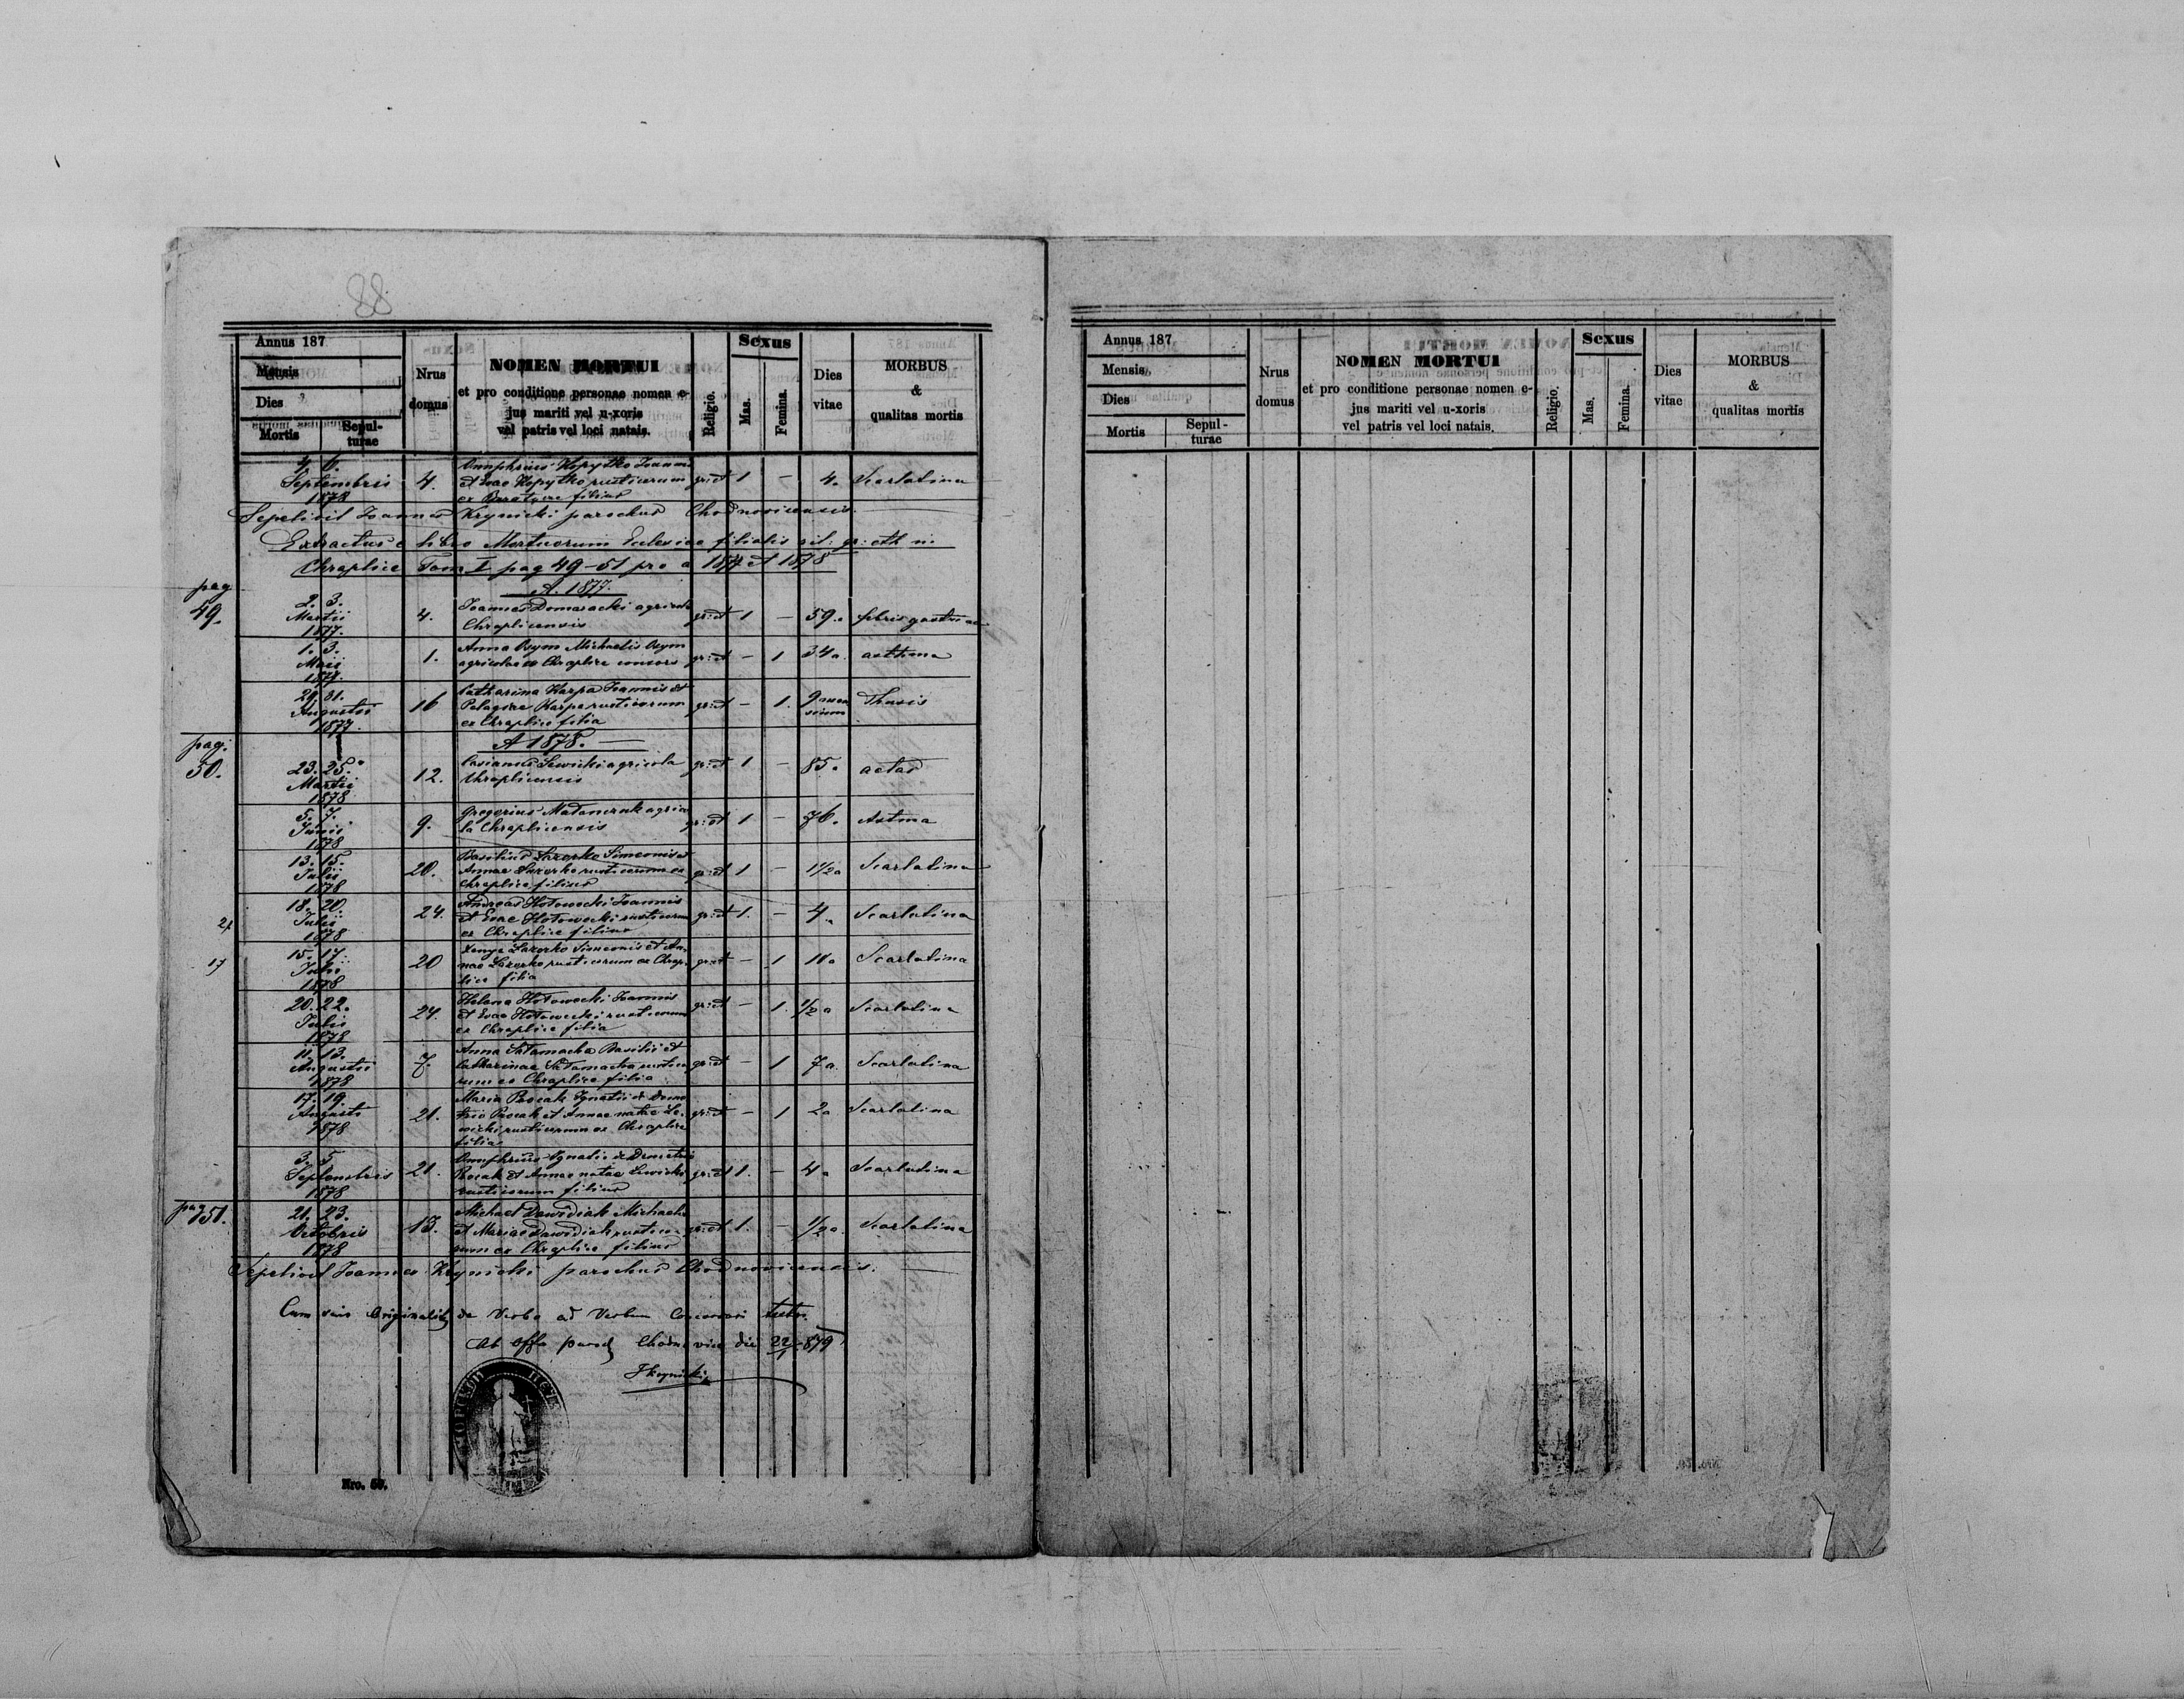 88
Annus 187
Mensis
Dies
Mortis
Sepul-
turae
Nrus
domus
NOMEN MORTUI
et pro conditione personae nomen e-
jus mariti vel u-xoris
vel patris vel loci natais.
Religio.
Sexus
Mas.
Femina.
Dies
vitae
MORBUS
&
qualitas mortis
4. 6.
Septembris
1878
4.
Kopytko Joannis
et Evae Kopytko rusticorum
filius
gr:ct 1 — 4a Scarlatina
Sepelivit Joannes Krynicki parochus Chodnovicensis.
Extractus e libro Mortuorum Ecclesiae filialis rit: gr: cth in
Chraplice Tom I pag 49-51 pro a 1877 et 1878
A. 1877.
pag
49.
2. 3.
Martii
1877.
4.
Joannes Domaracki agricola
Chraplicensis
gr:ct 1 — 59.
1. 3.
Maii
1877.
1.
Anna Michaelis
agricolae ex Chraplice consors
gr:ct — 1 34a. asthma
29. 31.
Augusti
1877.
16
Catharina Karpa Joannis et
Pelagiae Karpa rusticorum
ex Chraplice filia
gr:ct — 1. 9 men
sium
A 1878. —
pag.
50.
23. 25.
Martii
1878
12.
Lewicki agricola
Chraplicensis
gr:ct 1 — 85. aetas
5. 7.
Junii
1878
9.
Gregorius agrico
la Chraplicensis
gr:ct 1 — 76. Astma
13. 15.
Julii
1878
20.
Basilius Lazorko Simeonis et
Annae Lazorko rusticorum ex
Chraplice filius
gr:ct 1 — 1 1/2a Scarlatina
18. 20.
Julii
1878
24.
Andreas Hotowecki Joannis
et Evae Hotowecki rusticorum
ex Chraplice filius
gr:ct 1. — 4a Scarlatina
17
15. 17.
Julii
1878
20
Lazorko Simeonis et An-
nae Lazorko rusticorum ex Chrap-
lice filia
gr:ct — 1 Scarlatina
20. 22.
Julii
1878
24.
Helena Hotowecki Joannis
et Evae Hotowecki rusticorum
ex Chraplice filia
gr:ct — 1. 1/2a Scarlatina
11. 13.
Augusti
1878
7.
Anna Basilii et
Catharinae rustico
rum ex Chraplice filia
gr:ct — 1 7a. Scarlatina
17. 19.
Augusti
1878
21.
Maria Ignatii et Deme
trio et Annae natae Le-
wicki rusticorum ex Chraplice
filia
gr:ct — 1 2a Scarlatina
3. 5.
Septembris
1878
21.
Ignatii et Demetrii
et Annae natae Lewicki
rusticorum filius
gr:ct 1. — 4a Scarlatina
pag 51.
21. 23.
Octobris
1878
13.
Michael Dawidiak Michaelis
et Mariae Dawidiak rustico-
rum ex Chraplice filius
gr:ct 1. — 1/2a. Scarlatina
Sepelivit Joannes Krynicki parochus Chodnovicensis.
Cum suis de Verbo ad Verbum testor.
Ab Offo Chodnovice die 22/1 879
JKrynicki
Nro. 59.
Annus 187
Mensis
Dies
Mortis
Sepul-
turae
Nrus
domus
NOMEN MORTUI
et pro conditione personae nomen e-
jus mariti vel u-xoris
vel patris vel loci natais.
Religio.
Sexus
Mas.
Femina.
Dies
vitae
MORBUS
&
qualitas mortis